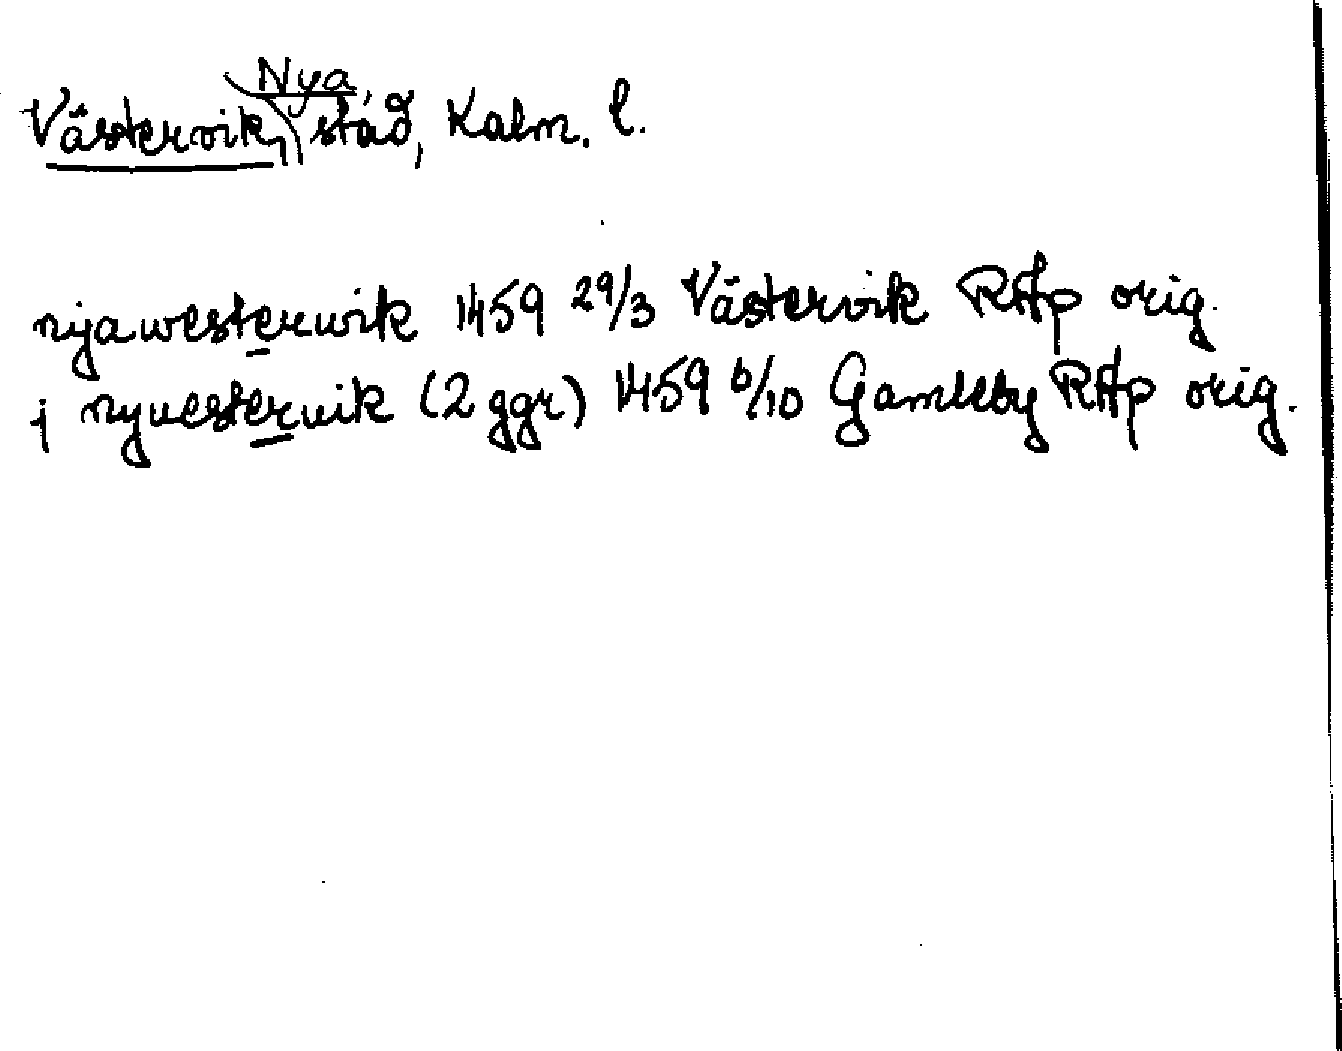 Västervik, Nya, stad, Kalm. l.
nyawesterwik 1459 29/3 Västervik RAp orig.
j nyuesteruik (2 ggr) 1459 6/10 Gamleby RAp orig.